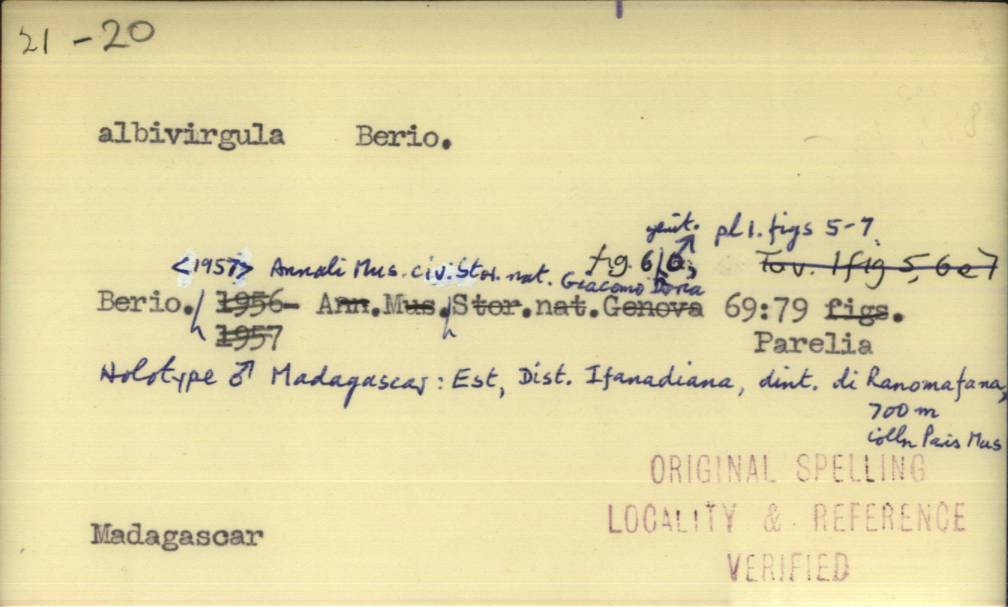 21 - 20
albivirgula Berio.
genit. ♂ pl 1. figs 5-7.
<1957> Annali Mus. civ. Stor. nat. Giacomo Doria fig. 6, Tav. 1 fig 5, 6 e 7
Berio. 1956- Ann. Mus. Stor. nat. Genova 69:79 figs.
1957 Parelia
Holotype ♂ Madagascar: Est, Dist. Ifanadiana, dint. di Ranomafana,
700 m
colln Paris Mus
ORIGINAL SPELLING
LOCALITY & REFERENCE
Madagascar
VERIFIED